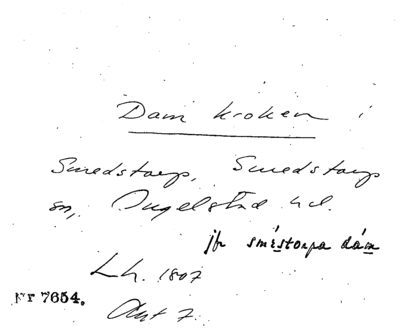 Damkroken i
Smedstorp, Smedstorps
sn, Ingelstad hd.
jfr sméstorpa dám
Lh. 1807
Akt 7
Nr 7654.